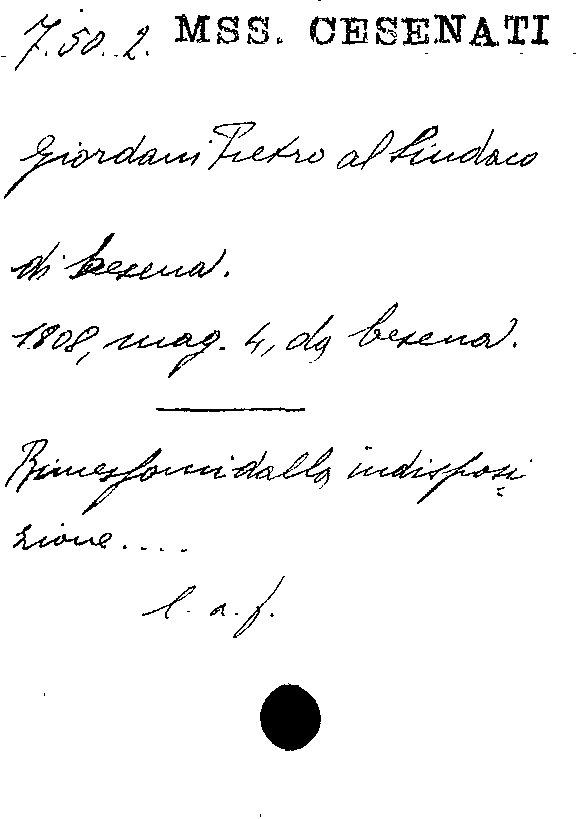 7.50.2. MSS. CESENATI
Giordani Pietro al Sindaco
di Cesena.
1808, mag. 4, da Cesena.
Rimessomi dalla indisposi
zione....
l. a. f.